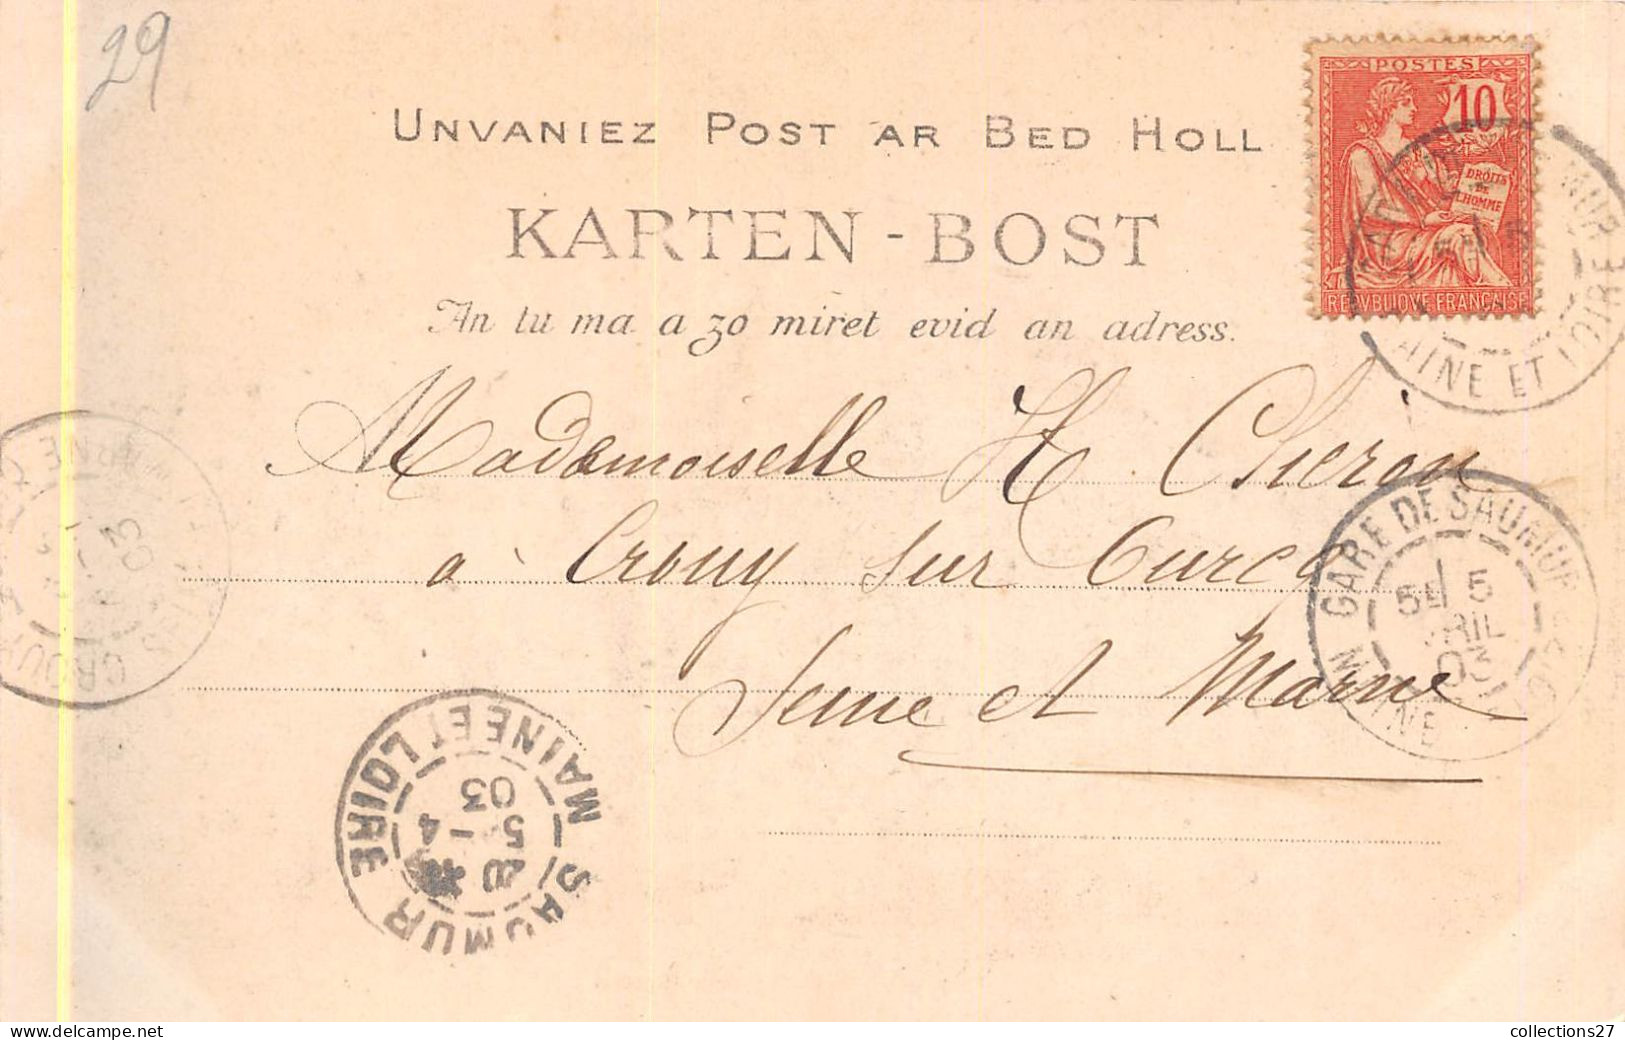 29
UNVANIEZ POST AR BED HOLL
KARTEN-BOST
An tu ma a zo miret evid an adress.
POSTES
10
DROITS
DE
L'HOMME
REPVBLIQVE FRANÇAISE
MAINE ET LOIRE
Mademoiselle H Cheron
à Crouy sur Ourcq
Seine et Marne
GARE DE SAUMUR
5E 5
AVRIL
03
MAINE
SAUMUR
MAINE ET LOIRE
5 - 4
03
CROUY
03
collections27